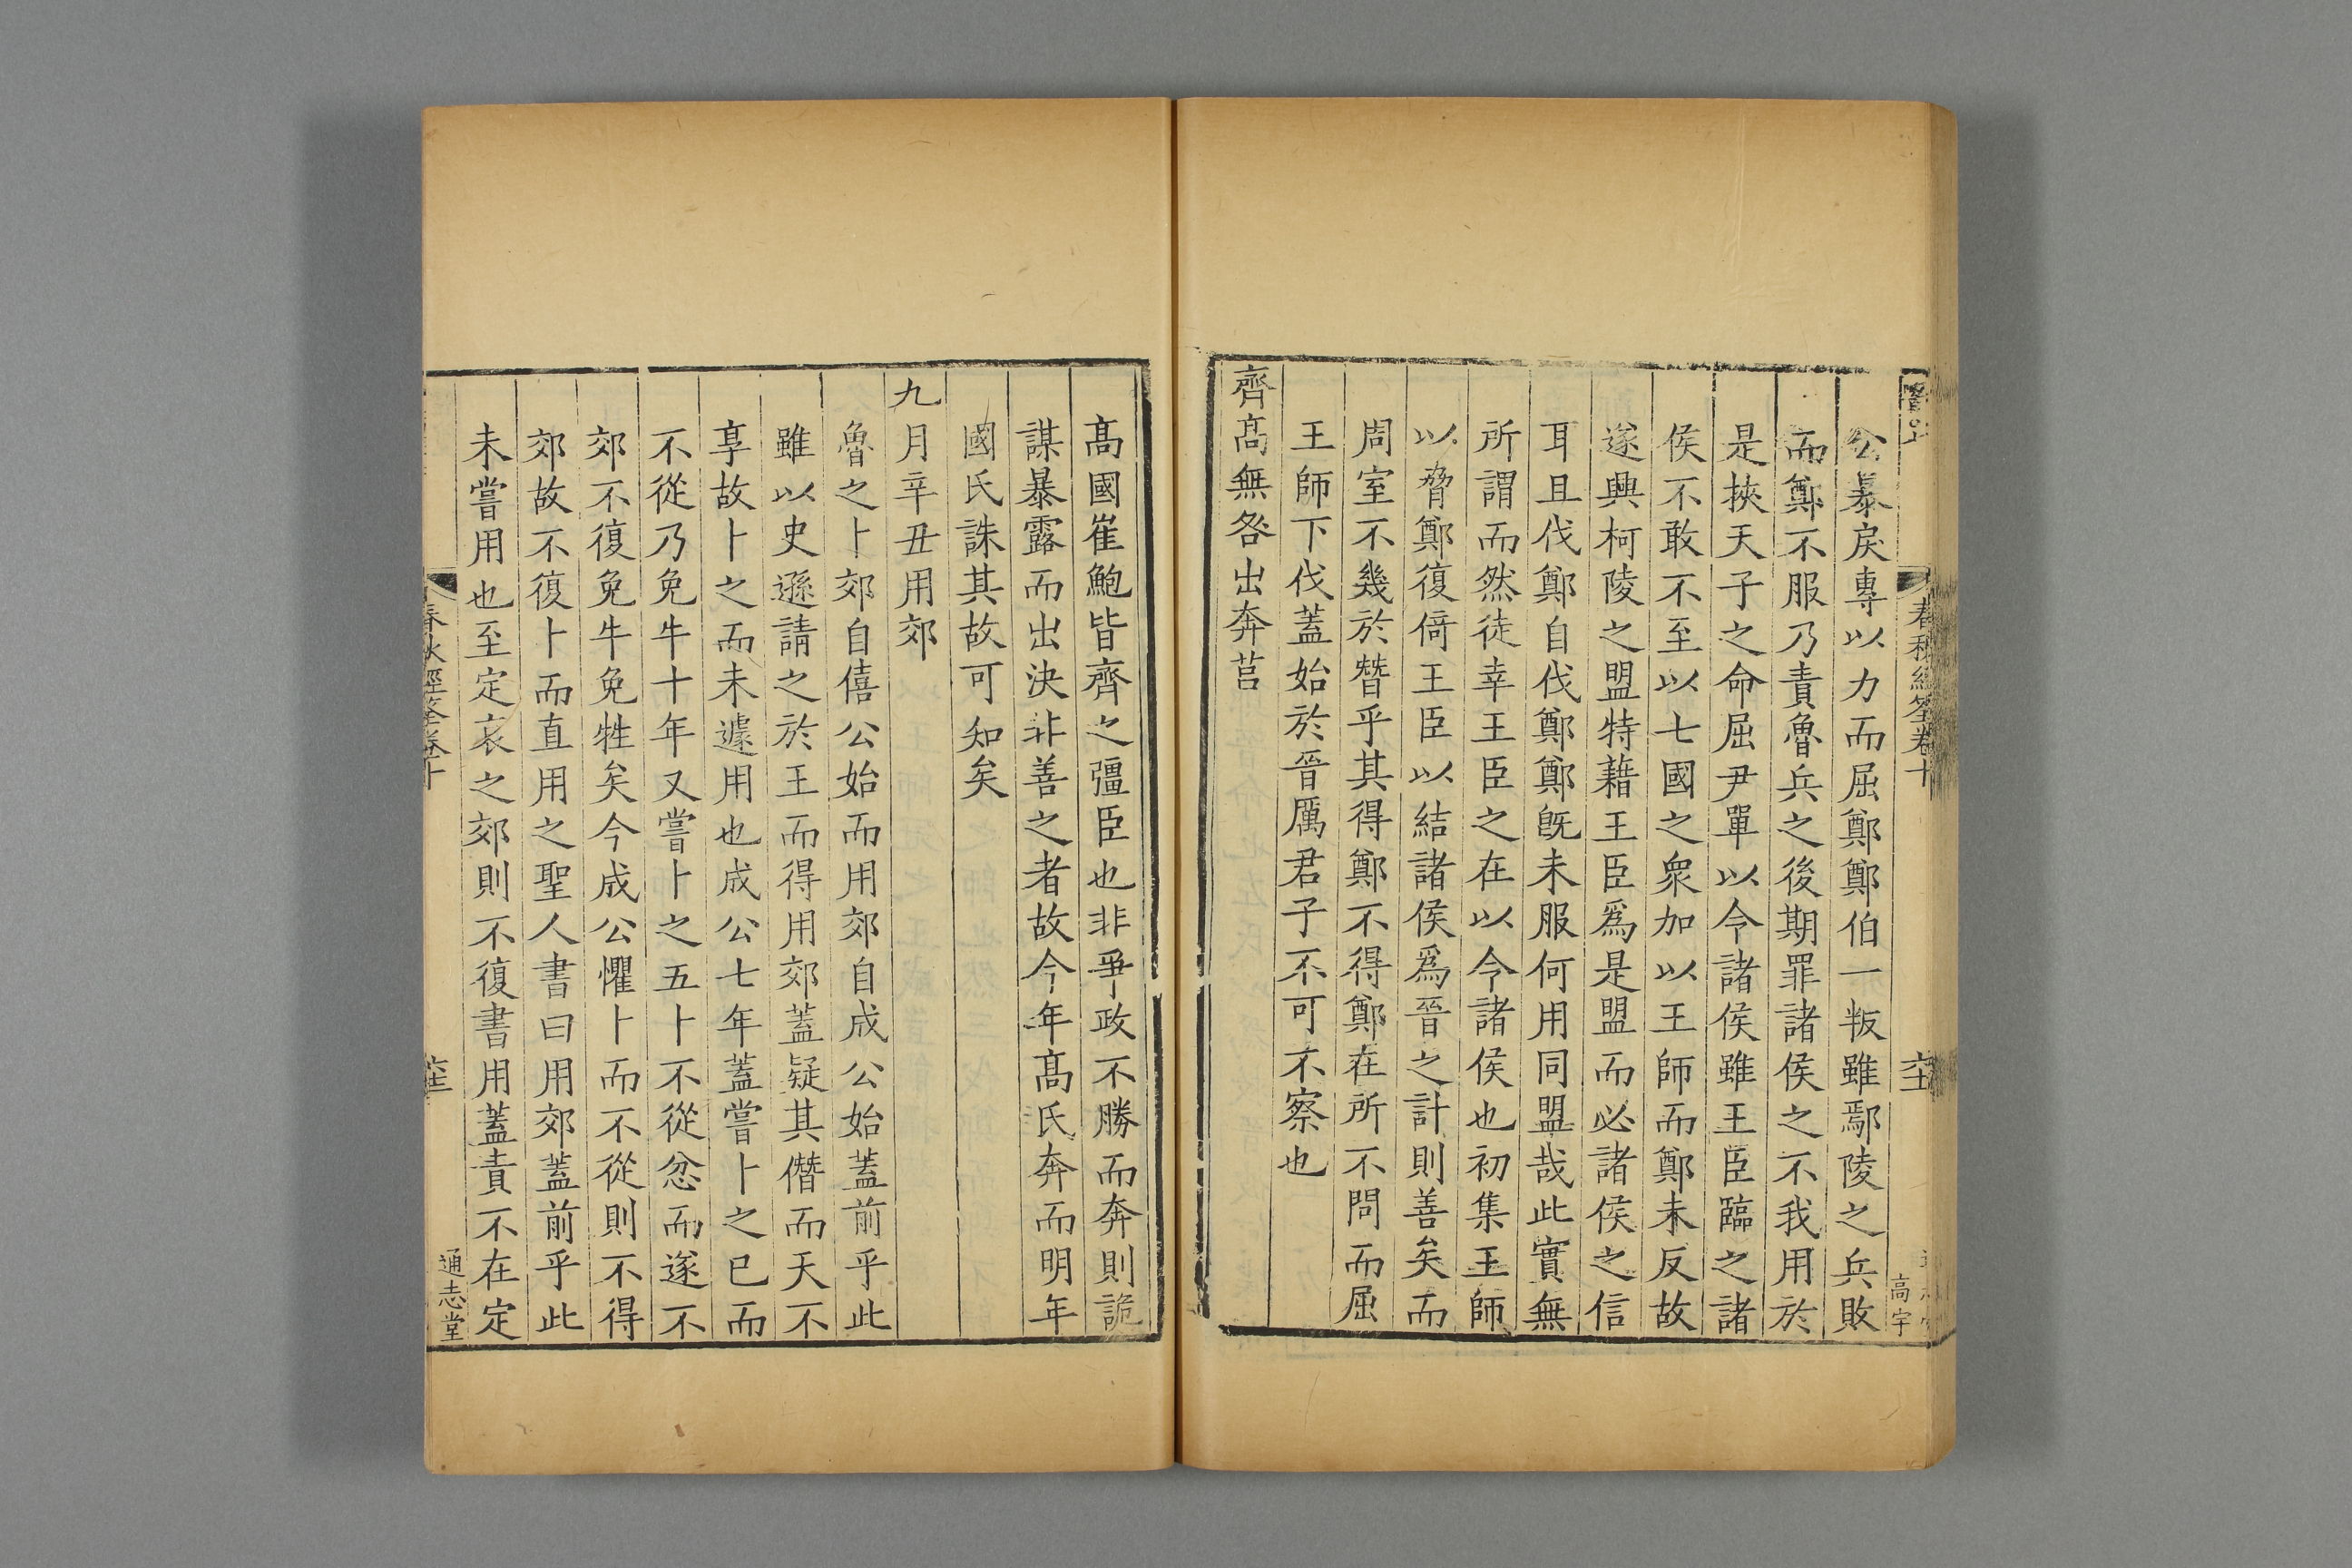 春秋經筌卷十
高宇
公暴戾專以力而屈鄭鄭伯一叛雖鄢陵之兵敗
而鄭不服乃責魯兵之後期罪諸侯之不我用於
是挾天子之命屈尹單以令諸侯雖王臣臨之諸
侯不敢不至以七國之衆加以王師而鄭未反故
遂興柯陵之盟特藉王臣爲是盟而必諸侯之信
耳且伐鄭自伐鄭鄭旣未服何用同盟哉此實無
所謂而然徒幸王臣之在以令諸侯也初集王師
以脅鄭復倚王臣以結諸侯爲晉之計則善矣而
周室不幾於替乎其得鄭不得鄭在所不問而屈
王師下伐蓋始於晉厲君子不可不察也
齊髙無咎出奔莒
髙國崔鮑皆齊之彊臣也非爭政不勝而奔則詭
謀暴露而出決非善之者故今年髙氏奔而明年
國氏誅其故可知矣
九月辛丑用郊
魯之卜郊自僖公始而用郊自成公始蓋前乎此
雖以史遜請之於王而得用郊蓋疑其僭而天不
享故卜之而未遽用也成公七年蓋嘗卜之已而
不從乃免牛十年又嘗卜之五卜不從忿而遂不
郊不復免牛免牲矣今成公懼卜而不從則不得
郊故不復卜而直用之聖人書曰用郊蓋前乎此
未嘗用也至定哀之郊則不復書用蓋責不在定
春秋經筌卷十
通志堂